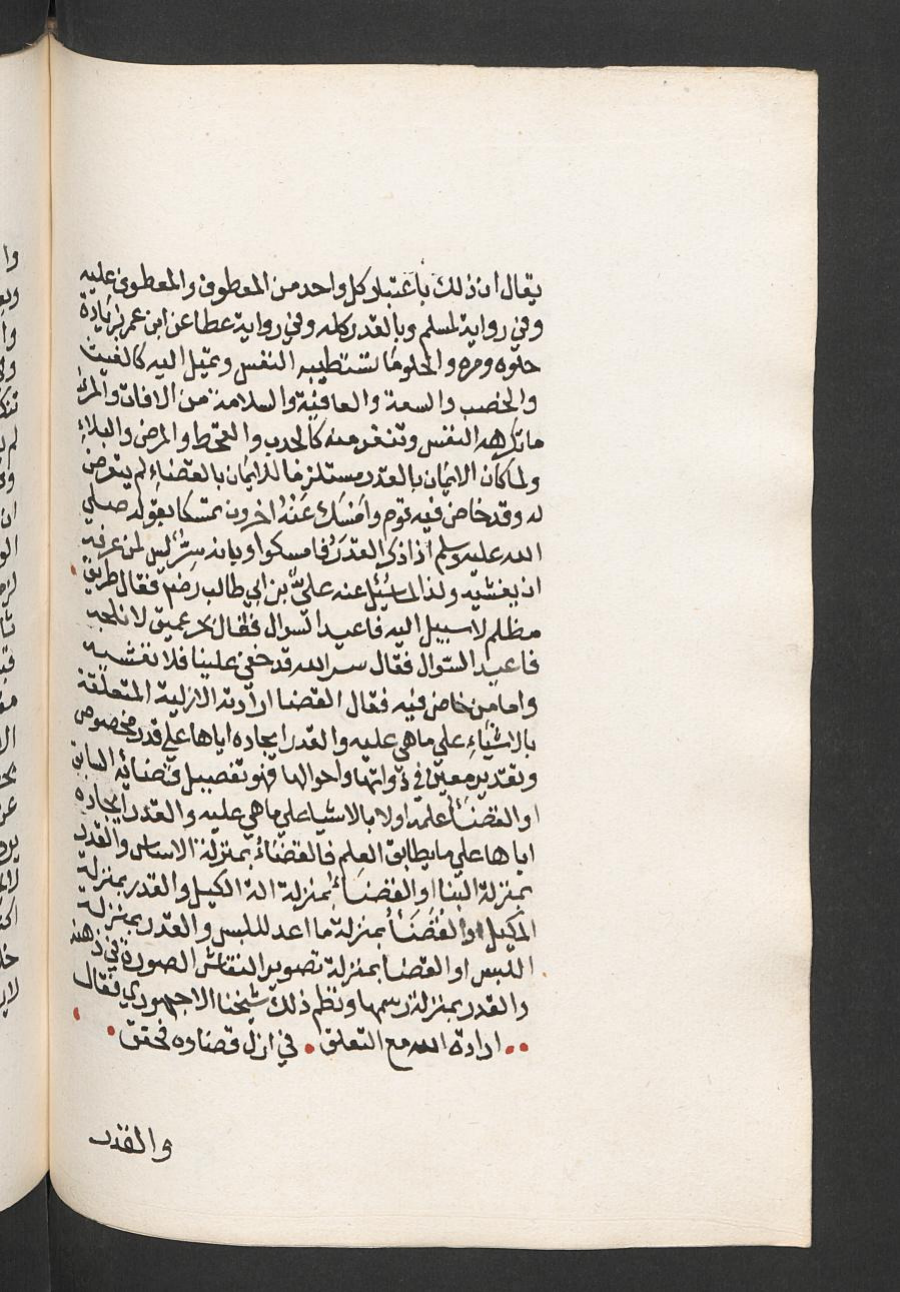 يقال ان ذلك باعتبار كل واحد من المعطوف والمعطوف عليه
وفي رواية لمسلم وبالقدر كله وفي رواية عطا عن ابن عمر بزيادة
حلوه ومره والحلو ما تستطيبه النفس وتميل اليه كالغيث
والخصب والسعة والعافية والسلامة من الافات والمر
ما تكرهه النفس وتنفر منه كالجدب والقحط والمرض والبلاء
ولما كان الايمان بالقدر مستلزما للايمان بالقضاء لم يتعرض
له وقد خاض فيه قوم وامسك عنه اخرون تمسكا بقوله صلي
الله عليه وسلم اذا ذكر القدر فامسكوا وبانه سر ليس لمن عرفه
ان يفشيه ولذا لما سئل عنه علي بن ابي طالب رضه فقال طريق
مظلم لا سبيل اليه فاعيد السوال فقال بحر عميق لا تلجه
فاعيد السوال فقال سر الله قد خفي علينا فلا نفشيه
واما من خاض فيه فقال القضا ارادته الازلية المتعلقة
بالاشياء علي ما هي عليه والقدر ايجاده اياها علي قدر مخصوص
وتقدير معين في ذواتها واحوالها فهو تفصيل قضائه السابق
او القضاء علمه اولا بالاشيا علي ما هي عليه والقدر ايجاده
اياها علي ما يطابق العلم فالقضاء بمنزلة الاساس والقدر
بمنزلة البنا او القضاء بمنزلة الة الكيل والقدر بمنزلة
المكيل او القضاء بمنزلة ما اعد للبس والقدر بمنزلة
اللبس او القضا بمنزلة تصوير النقاش الصورة في ذهنه
والقدر بمنزلة رسمها ونظم ذلك شيخنا الاجهوري فقال
ارادة الله مع التعلق • في ازل قضاوه فحقق •
والقدر